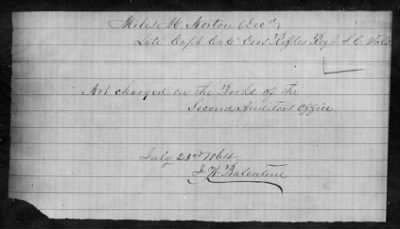 Miles M Norton (Decd)
Late Capt Co C Orrs Rifles Regt S.C. Vols
Not charged on the Books of the
Second Auditors Office
July 23rd 1864
J. W. Balentine